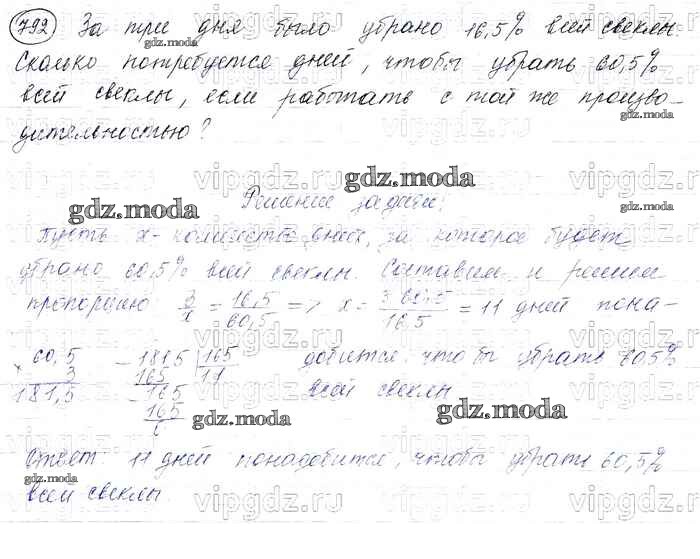 792 За три дня было убрано 16,5% всей свеклы.
Сколько потребуется дней, чтобы убрать 60,5%
всей свеклы, если работать с той же произво-
дительностью?
Решение задачи:
Пусть x - количество дней, за которое будет
убрано 60,5% всей свеклы. Составим и решим
пропорцию: 3/x = 16,5/60,5 => x = 3·60,5/16,5 = 11 дней пона-
добится, чтобы убрать 60,5%
всей свеклы
× 60,5
3
181,5
- 1815 | 165
165 11
- 165
165
0
Ответ: 11 дней понадобится, чтобы убрать 60,5%
всей свеклы.
gdz.moda
gdz.moda
gdz.moda
gdz.moda
gdz.moda
gdz.moda
gdz.moda
gdz.moda
gdz.moda
vipgdz.ru
vipgdz.ru
vipgdz.ru
vipgdz.ru